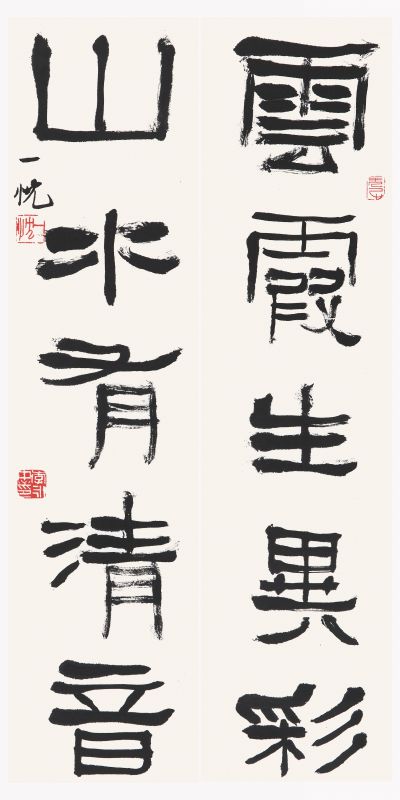 雲霞生異彩
山水有清音
一忱